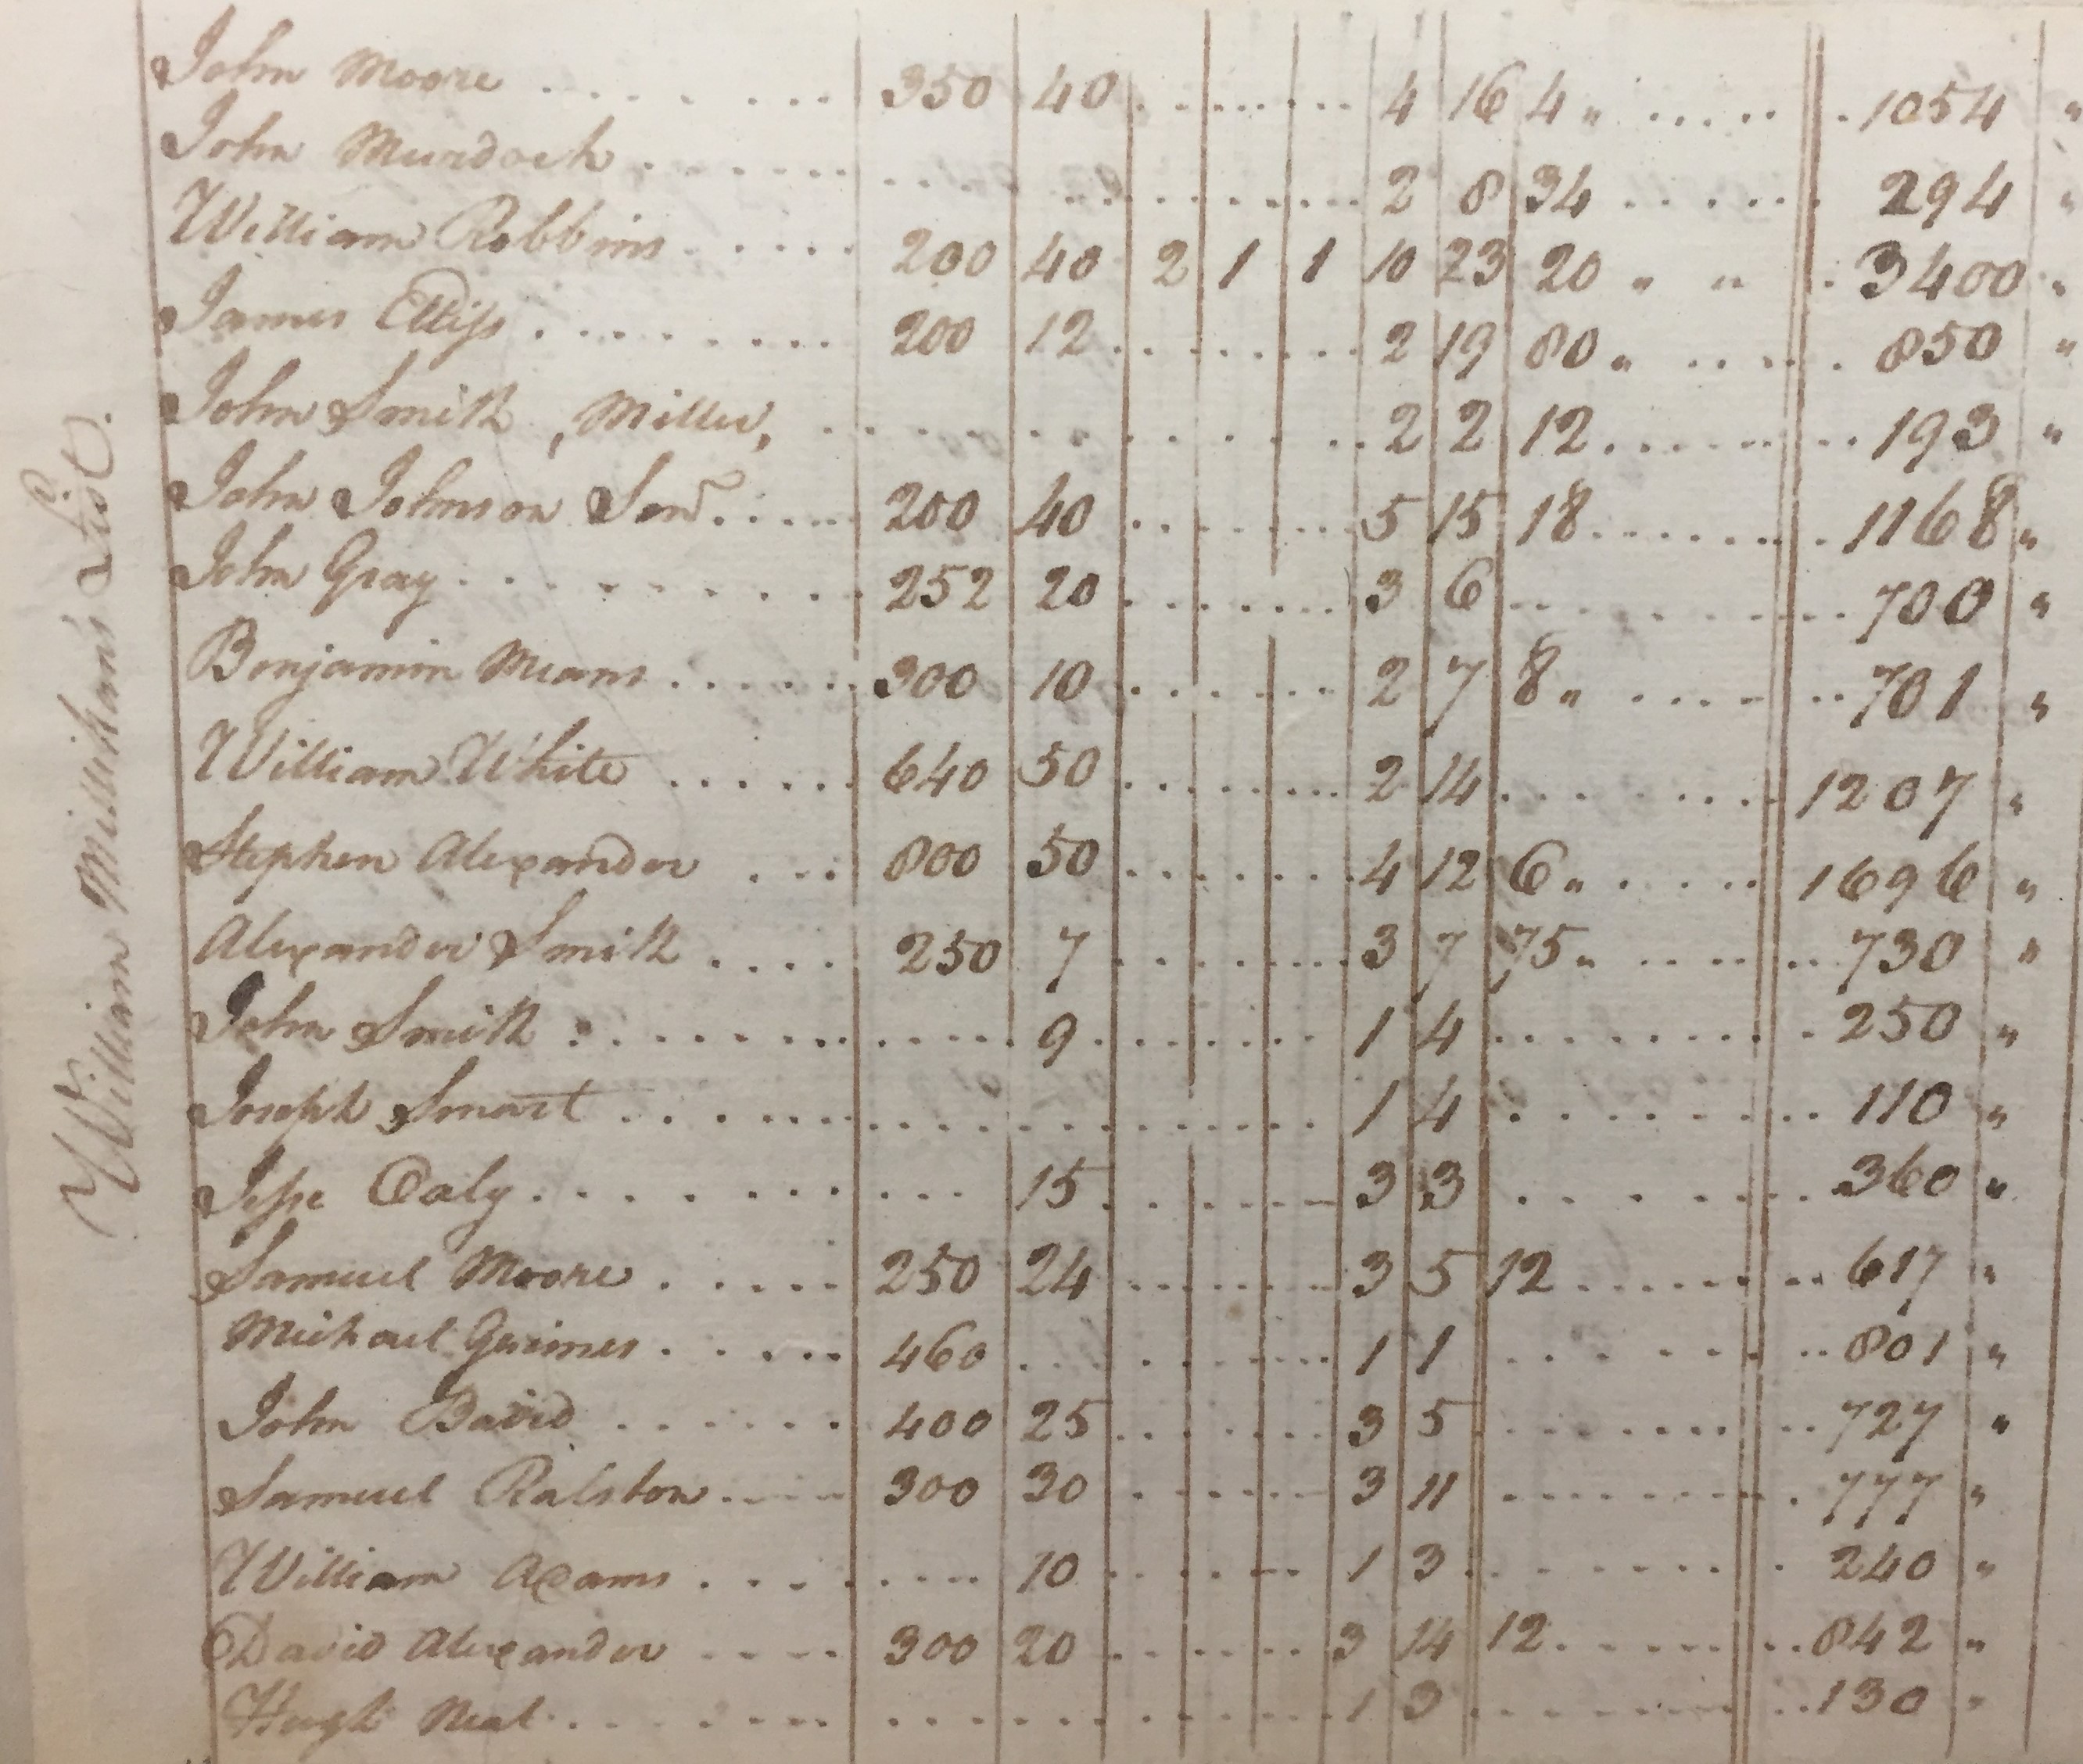 William Millikan's List.
John Moore 350 40 4 16 4 " 1054 "
John Murdock 2 8 34 294 "
William Robbins 200 40 2 1 1 10 23 20 " " 3400 "
James Elliss 200 12 2 19 80 " 850 "
John Smith , Miller, 2 2 12 193 "
John Johnson Senr. 200 40 5 15 18 1168 "
John Gray 252 20 3 6 700 "
Benjamin Means 300 10 2 7 8 " 701 "
William White 640 50 2 14 1207 "
Stephen Alexander 800 50 4 12 6 " 1696 "
Alexander Smith 250 7 3 7 75 " 730 "
John Smith 9 1 4 250 "
Joseph Smart 1 4 110 "
Jesse Daly 15 3 3 360 "
Samuel Moore 250 24 3 5 12 617 "
Michael Guines 460 1 1 801 "
John David 400 25 3 5 727 "
Samuel Ralston 300 30 3 11 777 "
William Adams 10 1 3 240 "
David Alexander 300 20 3 14 12 842 "
Hugh Neal 1 3 130 "